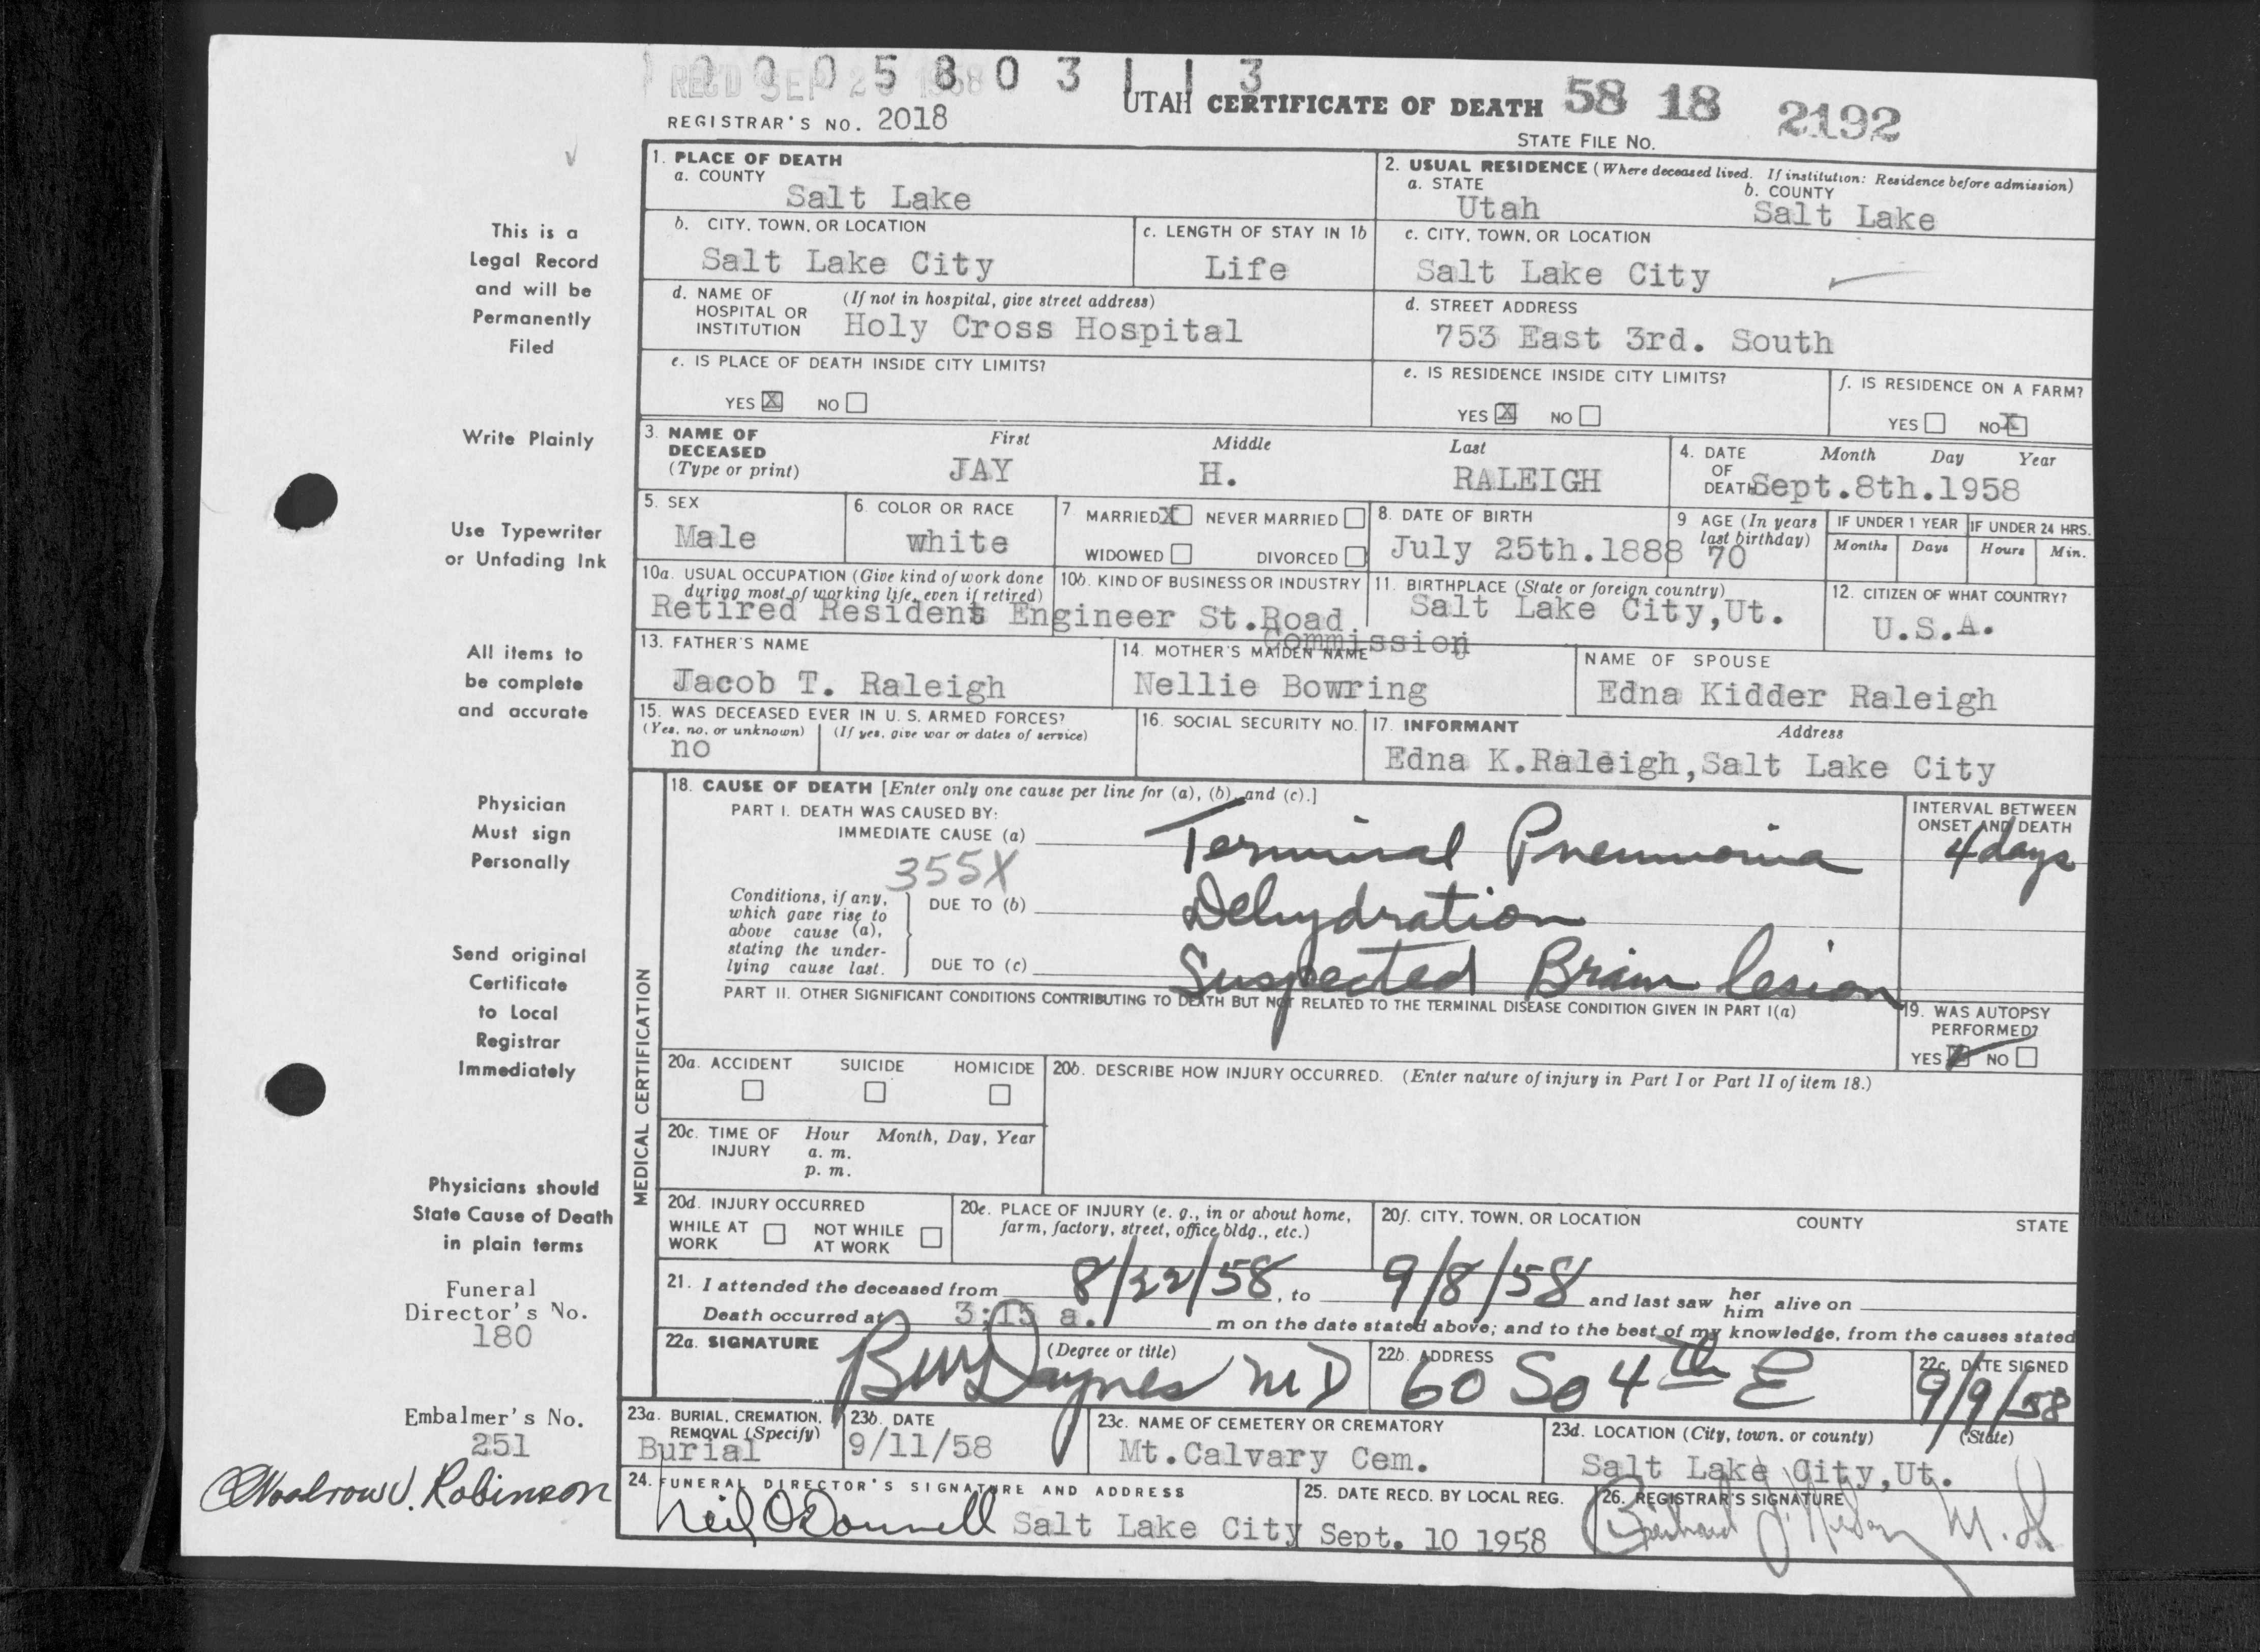 REC'D SEP 1958
0 0 0 5 8 0 3 1 1 3
UTAH CERTIFICATE OF DEATH 58 18 2192
REGISTRAR'S NO. 2018
STATE FILE NO.
1. PLACE OF DEATH
a. COUNTY
Salt Lake
2. USUAL RESIDENCE (Where deceased lived. If institution: Residence before admission)
a. STATE b. COUNTY
Utah Salt Lake
b. CITY, TOWN, OR LOCATION
Salt Lake City
c. LENGTH OF STAY IN 1b
Life
c. CITY, TOWN, OR LOCATION
Salt Lake City
d. NAME OF HOSPITAL OR INSTITUTION (If not in hospital, give street address)
Holy Cross Hospital
d. STREET ADDRESS
753 East 3rd. South
e. IS PLACE OF DEATH INSIDE CITY LIMITS?
YES X NO
e. IS RESIDENCE INSIDE CITY LIMITS?
YES X NO
f. IS RESIDENCE ON A FARM?
YES NO X
3. NAME OF DECEASED (Type or print)
First Middle Last
JAY H. RALEIGH
4. DATE OF DEATH Month Day Year
Sept.8th.1958
5. SEX
Male
6. COLOR OR RACE
white
7. MARRIED X NEVER MARRIED
WIDOWED DIVORCED
8. DATE OF BIRTH
July 25th.1888
9 AGE (In years last birthday)
70
IF UNDER 1 YEAR IF UNDER 24 HRS.
Months Days Hours Min.
10a. USUAL OCCUPATION (Give kind of work done during most of working life, even if retired)
Retired Resident Engineer
10b. KIND OF BUSINESS OR INDUSTRY
St.Road Commission
11. BIRTHPLACE (State or foreign country)
Salt Lake City,Ut.
12. CITIZEN OF WHAT COUNTRY?
U.S.A.
13. FATHER'S NAME
Jacob T. Raleigh
14. MOTHER'S MAIDEN NAME
Nellie Bowring
NAME OF SPOUSE
Edna Kidder Raleigh
15. WAS DECEASED EVER IN U. S. ARMED FORCES?
(Yes, no, or unknown) (If yes, give war or dates of service)
no
16. SOCIAL SECURITY NO.
17. INFORMANT Address
Edna K.Raleigh,Salt Lake City
MEDICAL CERTIFICATION
18. CAUSE OF DEATH [Enter only one cause per line for (a), (b), and (c).]
PART I. DEATH WAS CAUSED BY:
IMMEDIATE CAUSE (a) Terminal Pneumonia
INTERVAL BETWEEN ONSET AND DEATH
4 days
355X
Conditions, if any, which gave rise to above cause (a), stating the underlying cause last.
DUE TO (b) Dehydration
DUE TO (c) Suspected Brain lesion
PART II. OTHER SIGNIFICANT CONDITIONS CONTRIBUTING TO DEATH BUT NOT RELATED TO THE TERMINAL DISEASE CONDITION GIVEN IN PART I(a)
19. WAS AUTOPSY PERFORMED?
YES NO
20a. ACCIDENT SUICIDE HOMICIDE
20b. DESCRIBE HOW INJURY OCCURRED. (Enter nature of injury in Part I or Part II of item 18.)
20c. TIME OF INJURY Hour Month, Day, Year
a. m.
p. m.
20d. INJURY OCCURRED
WHILE AT WORK NOT WHILE AT WORK
20e. PLACE OF INJURY (e. g., in or about home, farm, factory, street, office bldg., etc.)
20f. CITY, TOWN, OR LOCATION COUNTY STATE
21. I attended the deceased from 8/22/58, to 9/8/58 and last saw her him alive on
Death occurred at 3:15 a. m on the date stated above; and to the best of my knowledge, from the causes stated
22a. SIGNATURE (Degree or title)
BW Daynes MD
22b. ADDRESS
60 So 4th E
22c. DATE SIGNED
9/9/58
23a. BURIAL, CREMATION, REMOVAL (Specify)
Burial
23b. DATE
9/11/58
23c. NAME OF CEMETERY OR CREMATORY
Mt.Calvary Cem.
23d. LOCATION (City, town, or county) (State)
Salt Lake City,Ut.
24. FUNERAL DIRECTOR'S SIGNATURE AND ADDRESS
Neil O'Donnell Salt Lake City
25. DATE RECD. BY LOCAL REG.
Sept. 10 1958
26. REGISTRAR'S SIGNATURE
This is a
Legal Record
and will be
Permanently
Filed
Write Plainly
Use Typewriter
or Unfading Ink
All items to
be complete
and accurate
Physician
Must sign
Personally
Send original
Certificate
to Local
Registrar
Immediately
Physicians should
State Cause of Death
in plain terms
Funeral
Director's No.
180
Embalmer's No.
251
Woodrow V. Robinson